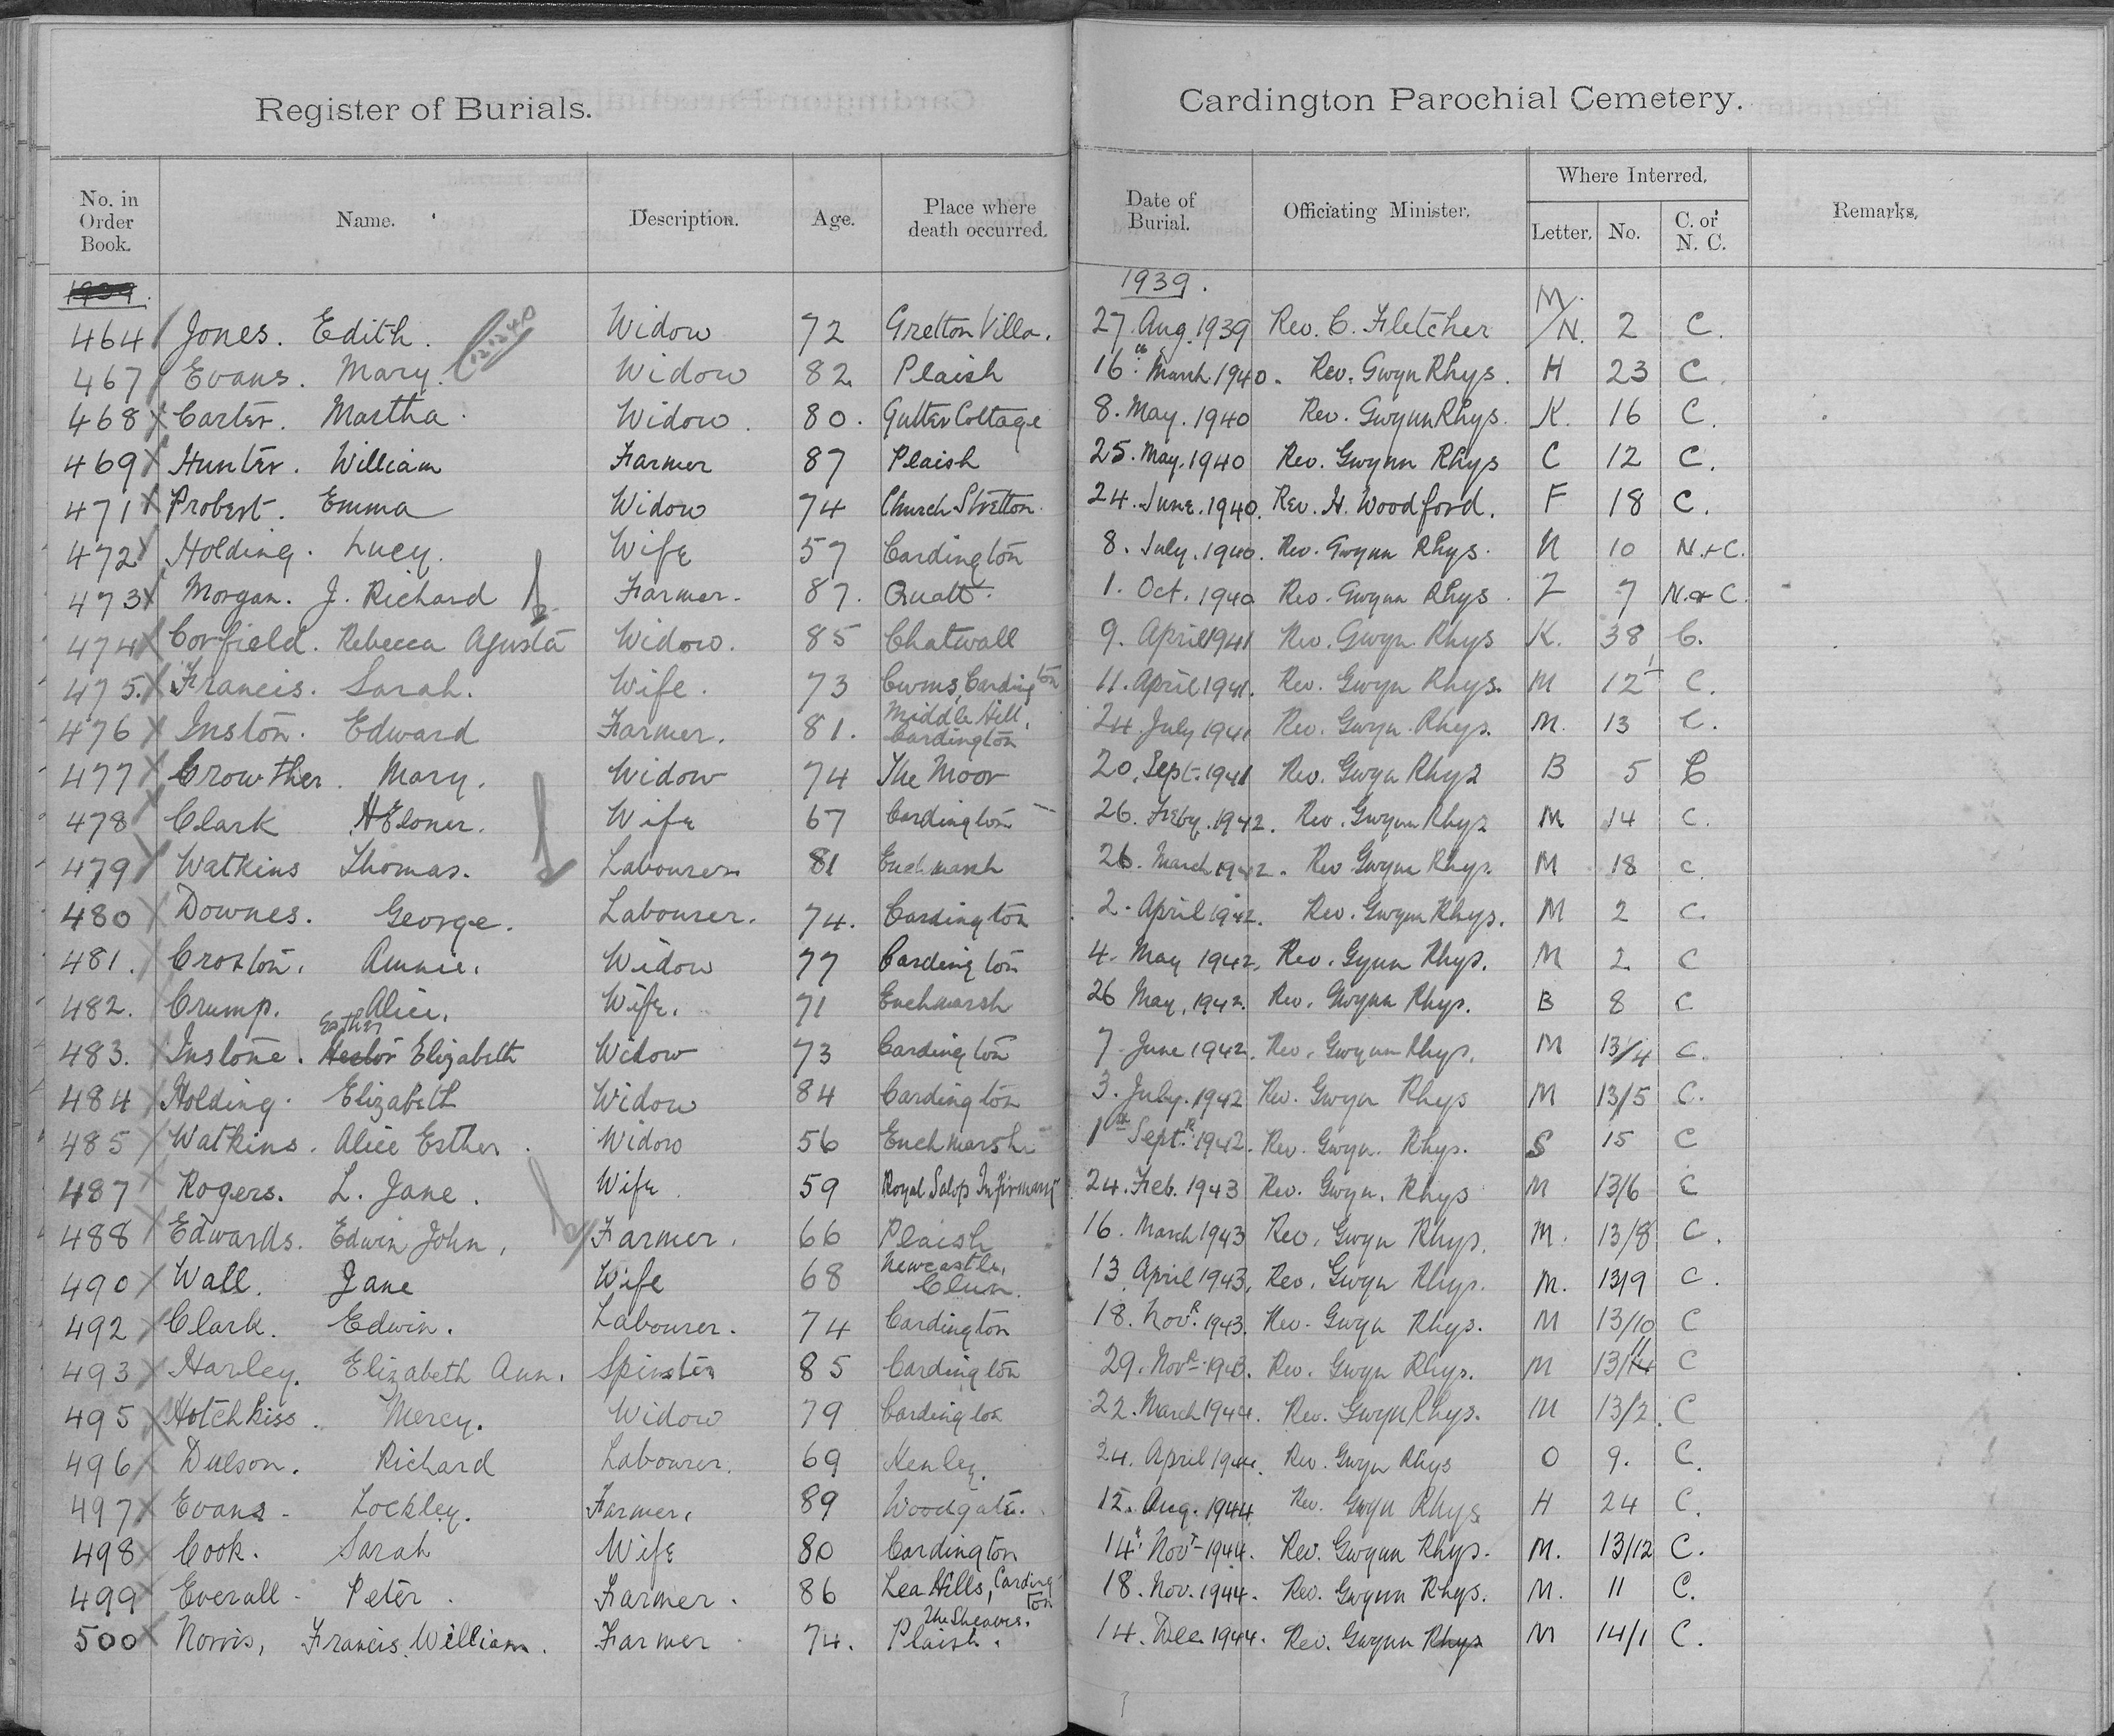 Register of Burials. Cardington Parochial Cemetery.
No. in Order Book. Name. Description. Age. Place where death occurred. Date of Burial. Officiating Minister. Where Interred. Letter. No. C. or N. C. Remarks.
1939. 1939.
464 Jones. Edith. Widow 72 Gretton Villa. 27 Aug. 1939 Rev. C. Fletcher M/N. 2 C.
12.12.40
467 Evans. Mary. Widow 82 Plaish 16th March 1940. Rev. Gwyn Rhys. H 23 C.
468 Carter. Martha. Widow. 80. Gutter Cottage 8. May. 1940 Rev. Gwynn Rhys. K. 16 C.
469 Hunter. William Farmer 87 Plaish 25. May. 1940 Rev. Gwynn Rhys C 12 C.
471 Probert. Emma Widow 74 Church Stretton. 24. June. 1940. Rev. H. Woodford. F 18 C.
472 Holding. Lucy. Wife 57 Cardington 8. July. 1940. Rev. Gwynn Rhys. N 10 N.+C.
473 Morgan. J. Richard Farmer. 87. Quatt. 1. Oct. 1940 Rev. Gwynn Rhys. 7 N.+C.
474 Corfield. Rebecca Agusta Widow. 85 Chatwall 9. April 1941 Rev. Gwyn. Rhys K. 38 C.
475. Francis. Sarah. Wife. 73 Cwms, Cardington 11. April 1941. Rev. Gwyn Rhys. M 12 C.
476 Inston. Edward Farmer. 81. Middle Hill, Cardington 24 July 1941 Rev. Gwyn. Rhys. M. 13 C.
477 Crowther. Mary. Widow 74 The Moor 20. Sept. 1941 Rev. Gwyn Rhys B 5 C
478 Clark Wife 67 Cardington 26. Feby. 1942. Rev. Gwynn Rhys M 14 C.
479 Watkins Thomas. Labourer 81 Enchmarsh 26. March 1942. Rev Gwynn Rhys. M 18 C
480 Downes. George. Labourer. 74. Cardington 2. April 1942. Rev. Gwynn Rhys. M 2 C.
481. Croxton. Annie. Widow 77 Cardington 4. May 1942. Rev. Gynn Rhys. M 2 C
482. Crump. Alice. Wife. 71 Enchmarsh 26 May, 1942. Rev. Gwynn Rhys. B 8 C
Esther
483. Instone. Hector Elizabeth Widow 73 Cardington 7. June 1942. Rev. Gwynn Rhys. M 13/4 C.
484 Holding. Elizabeth Widow 84 Cardington 3. July. 1942 Rev. Gwyn Rhys M 13/5 C.
485 Watkins. Alice Esther. Widow 56 Enchmarsh 1st Septr. 1942. Rev. Gwyn. Rhys. S 15 C
487 Rogers. L. Jane. Wife 59 Royal Salop Infirmary 24. Feb. 1943 Rev. Gwyn. Rhys M 13/6 C
488 Edwards. Edwin John. Farmer. 66 Plaish 16. March 1943 Rev. Gwyn Rhys. M. 13/8 C.
490 Wall. Jane Wife 68 Newcastle, Clun. 13 April 1943. Rev. Gwyn Rhys. M. 13/9 C.
492 Clark. Edwin. Labourer. 74 Cardington 18. Novr. 1943. Rev. Gwyn Rhys. M 13/10 C
493 Harley. Elizabeth Ann. Spinster 85 Cardington 29. Novr. 1943. Rev. Gwyn Rhys. M 13/11 C
495 Hotchkiss. Mercy. Widow 79 Cardington 22. March 1944. Rev. Gwyn Rhys. M 13/2. C
496 Dulson. Richard Labourer. 69 Henley. 24. April 1944. Rev. Gwyn Rhys O 9. C.
497 Evans - Lockley. Farmer. 89 Woodgate. 12. Aug. 1944 Rev. Gwyn Rhys H 24 C.
498 Cook. Sarah Wife 80 Cardington 14th Novr 1944. Rev. Gwynn Rhys. M. 13/12 C.
499 Everall - Peter. Farmer. 86 Lea Hills, Cardington 18. Nov. 1944. Rev. Gwynn Rhys. M. 11 C.
500 Norris, Francis. William. Farmer 74. The Sheaves. Plaish. 14. Dec. 1944. Rev. Gwynn Rhys M 14/1 C.